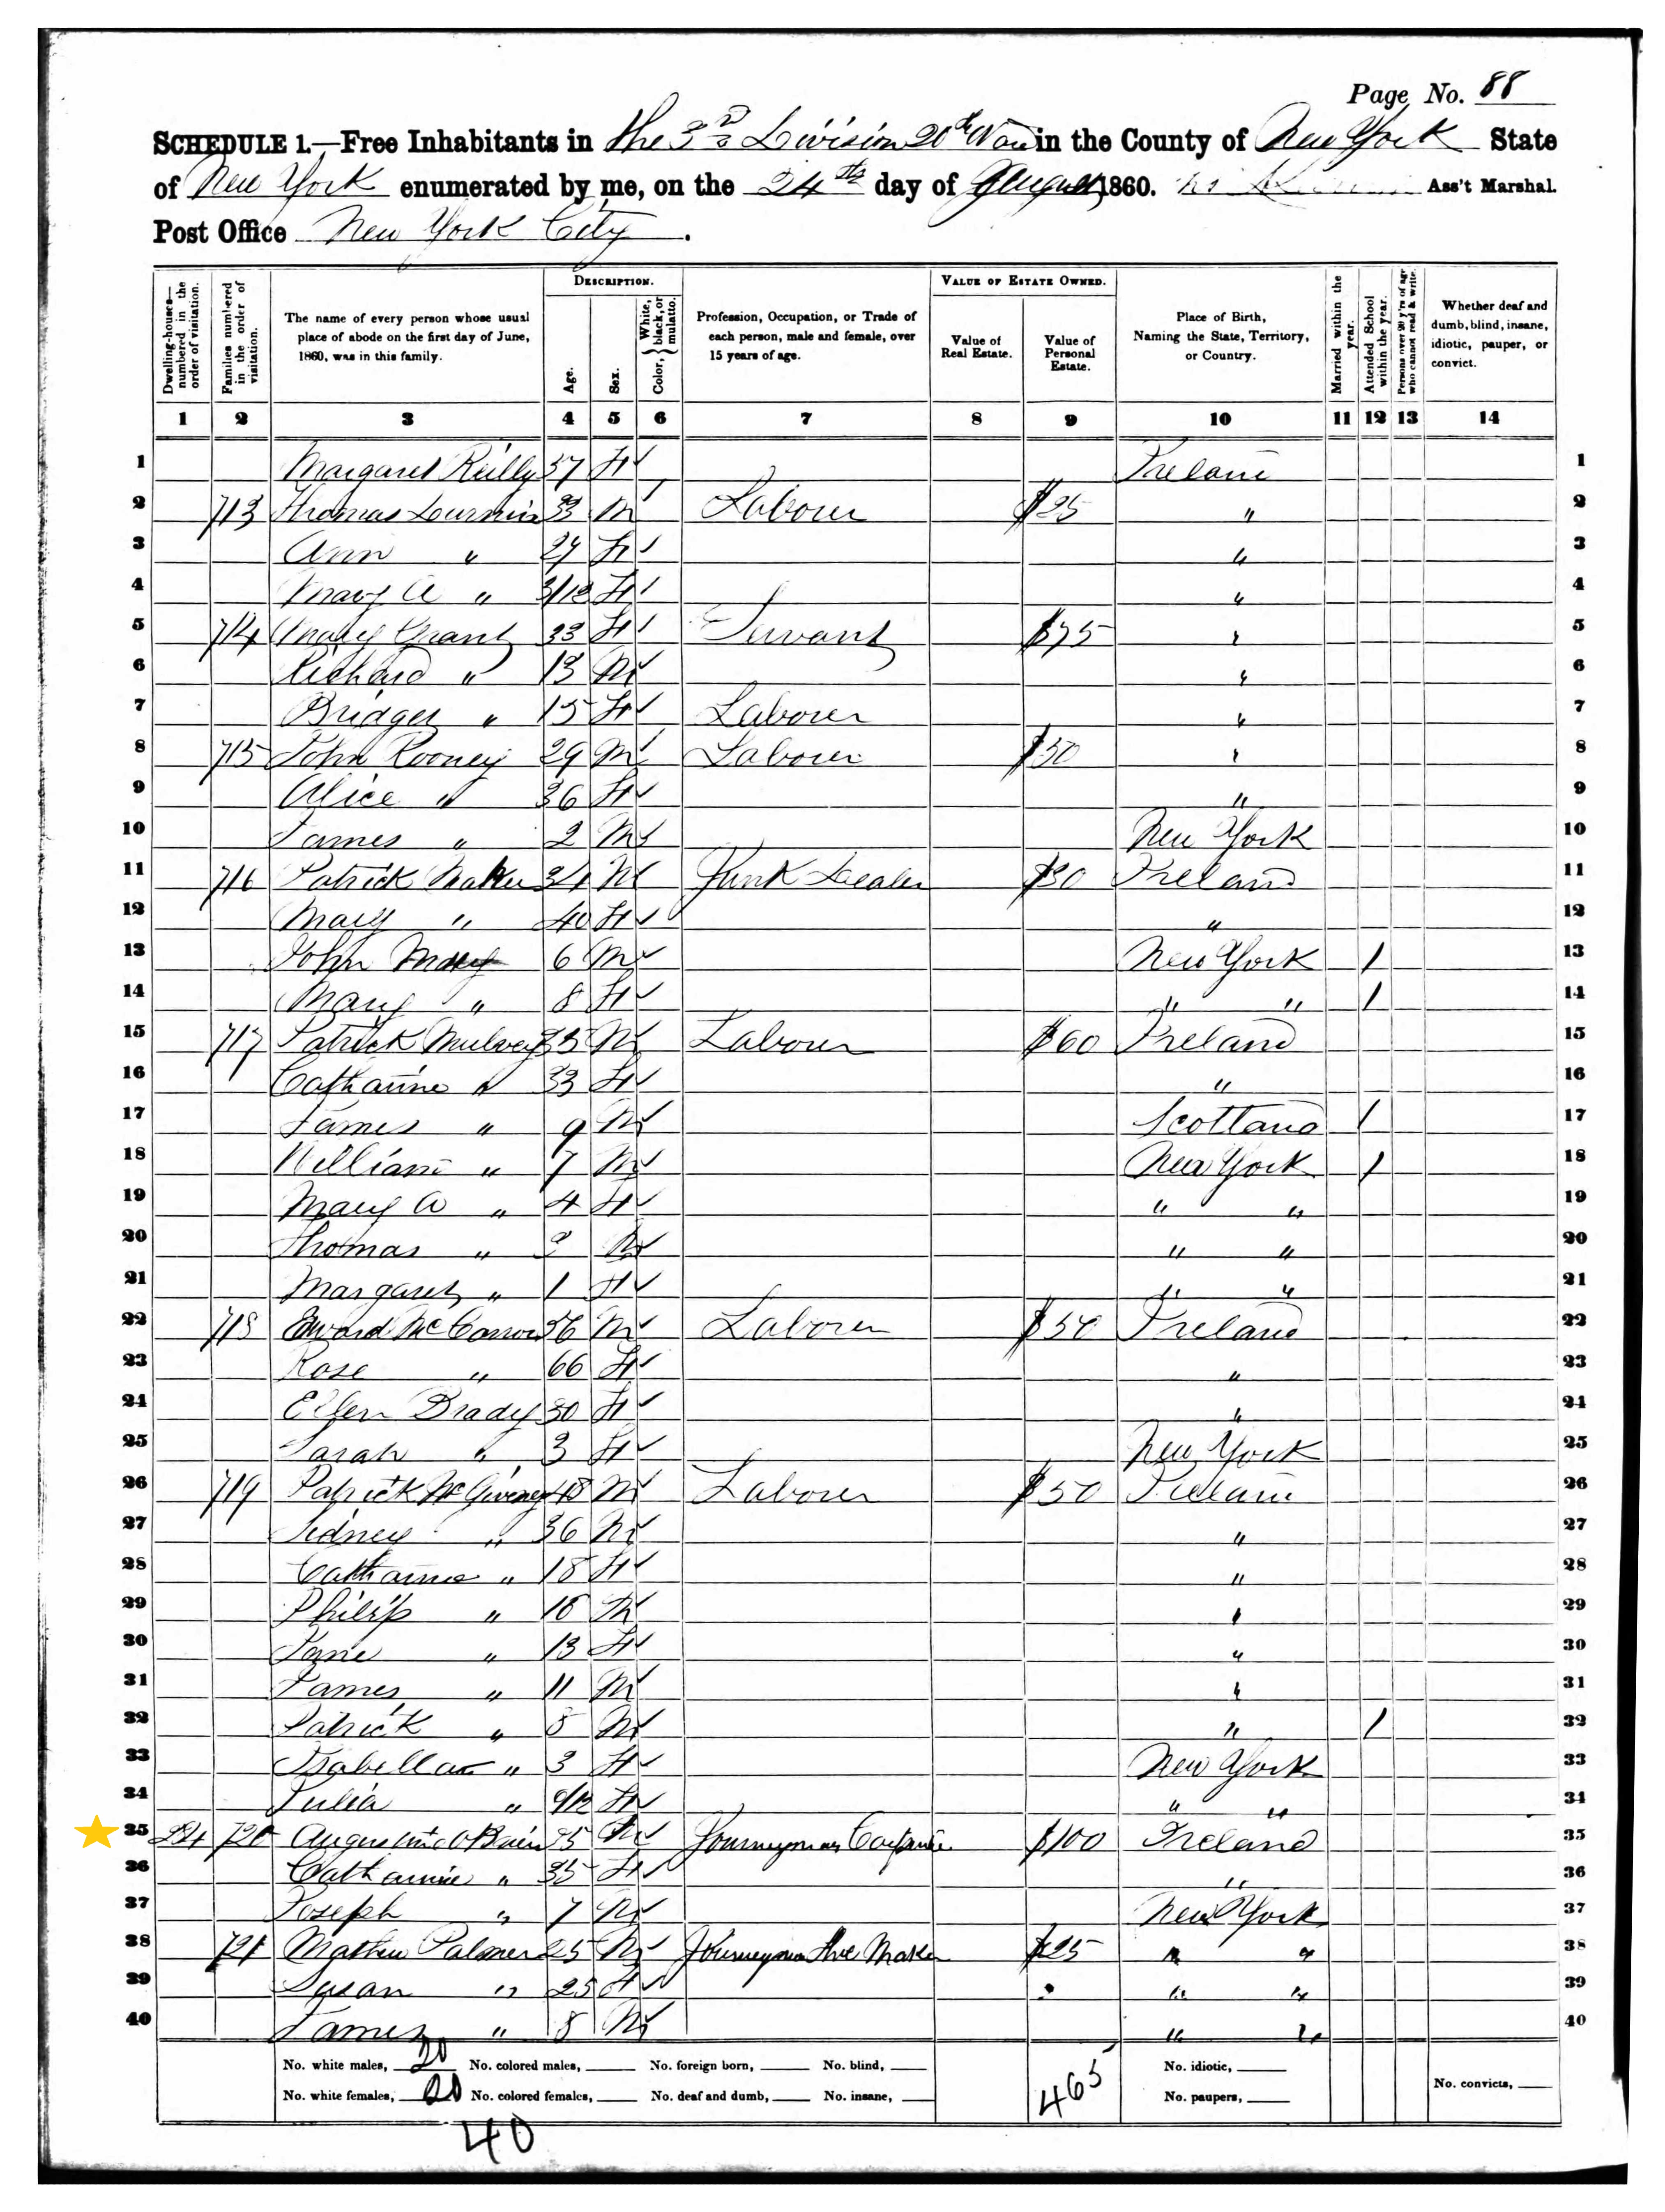 Page No. 88
SCHEDULE 1.—Free Inhabitants in the 3rd Division 20th Ward in the County of New York State
of New York enumerated by me, on the 24th day of August 1860. Ass't Marshal.
Post Office New York City.
Dwelling-houses—numbered in the order of visitation.
Families numbered in the order of visitation.
The name of every person whose usual place of abode on the first day of June, 1860, was in this family.
DESCRIPTION.
Age.
Sex.
Color, { White, black, or mulatto.
Profession, Occupation, or Trade of each person, male and female, over 15 years of age.
VALUE OF ESTATE OWNED.
Value of Real Estate.
Value of Personal Estate.
Place of Birth, Naming the State, Territory, or Country.
Married within the year.
Attended School within the year.
Persons over 20 y'rs of age who cannot read & write.
Whether deaf and dumb, blind, insane, idiotic, pauper, or convict.
1 2 3 4 5 6 7 8 9 10 11 12 13 14
1 Margaret Reilly 57 F Ireland 1
2 713 Thomas 33 M Labourer $25 " 2
3 Ann " 27 F " 3
4 Mary A " 3/12 F " 4
5 714 Mary Grant 33 F Servant $75 " 5
6 Richard " 13 M " 6
7 Bridget " 15 F Laborer " 7
8 715 John Rooney 29 M Laborer $50 " 8
9 Alice " 36 F " 9
10 James " 2 M New York 10
11 716 Patrick 34 M Junk Dealer $30 Ireland 11
12 Mary " 40 F " 12
13 John 6 M New York / 13
14 Mary " 8 F " " / 14
15 717 Patrick Mulvey 35 M Laborer $60 Ireland 15
16 Catharine " 33 F " 16
17 James " 9 M Scotland / 17
18 William " 7 M New York / 18
19 Mary A " 4 F " " 19
20 Thomas " M " " 20
21 Margaret " 1 F " " 21
22 718 Edward McCarron 56 M Laborer $50 Ireland 22
23 Rose " 66 F " 23
24 Ellen Brady 30 F " 24
25 Sarah " 3 F New York 25
26 719 Patrick McGiveney 48 M Laborer $50 Ireland 26
27 Sidney " 36 M " 27
28 Catharine " 18 F " 28
29 Philip " M " 29
30 Jane " 13 F " 30
31 James " 11 M " 31
32 Patrick " 5 M " / 32
33 Isabella " 3 F New York 33
34 Julia " F " " 34
35 224 720 Augustine O'Brien 35 M Journeyman Carpenter $100 Ireland 35
36 Catharine " 35 F " 36
37 Joseph " 7 M New York 37
38 721 Mathew Palmer 25 M Journeyman Shoe Maker $25 " " 38
39 Susan " 25 F " " 39
40 James " 8 M " " 40
No. white males, 20 No. colored males, No. foreign born, No. blind, No. idiotic,
No. white females, 20 No. colored females, No. deaf and dumb, No. insane, 465 No. paupers, No. convicts,
40